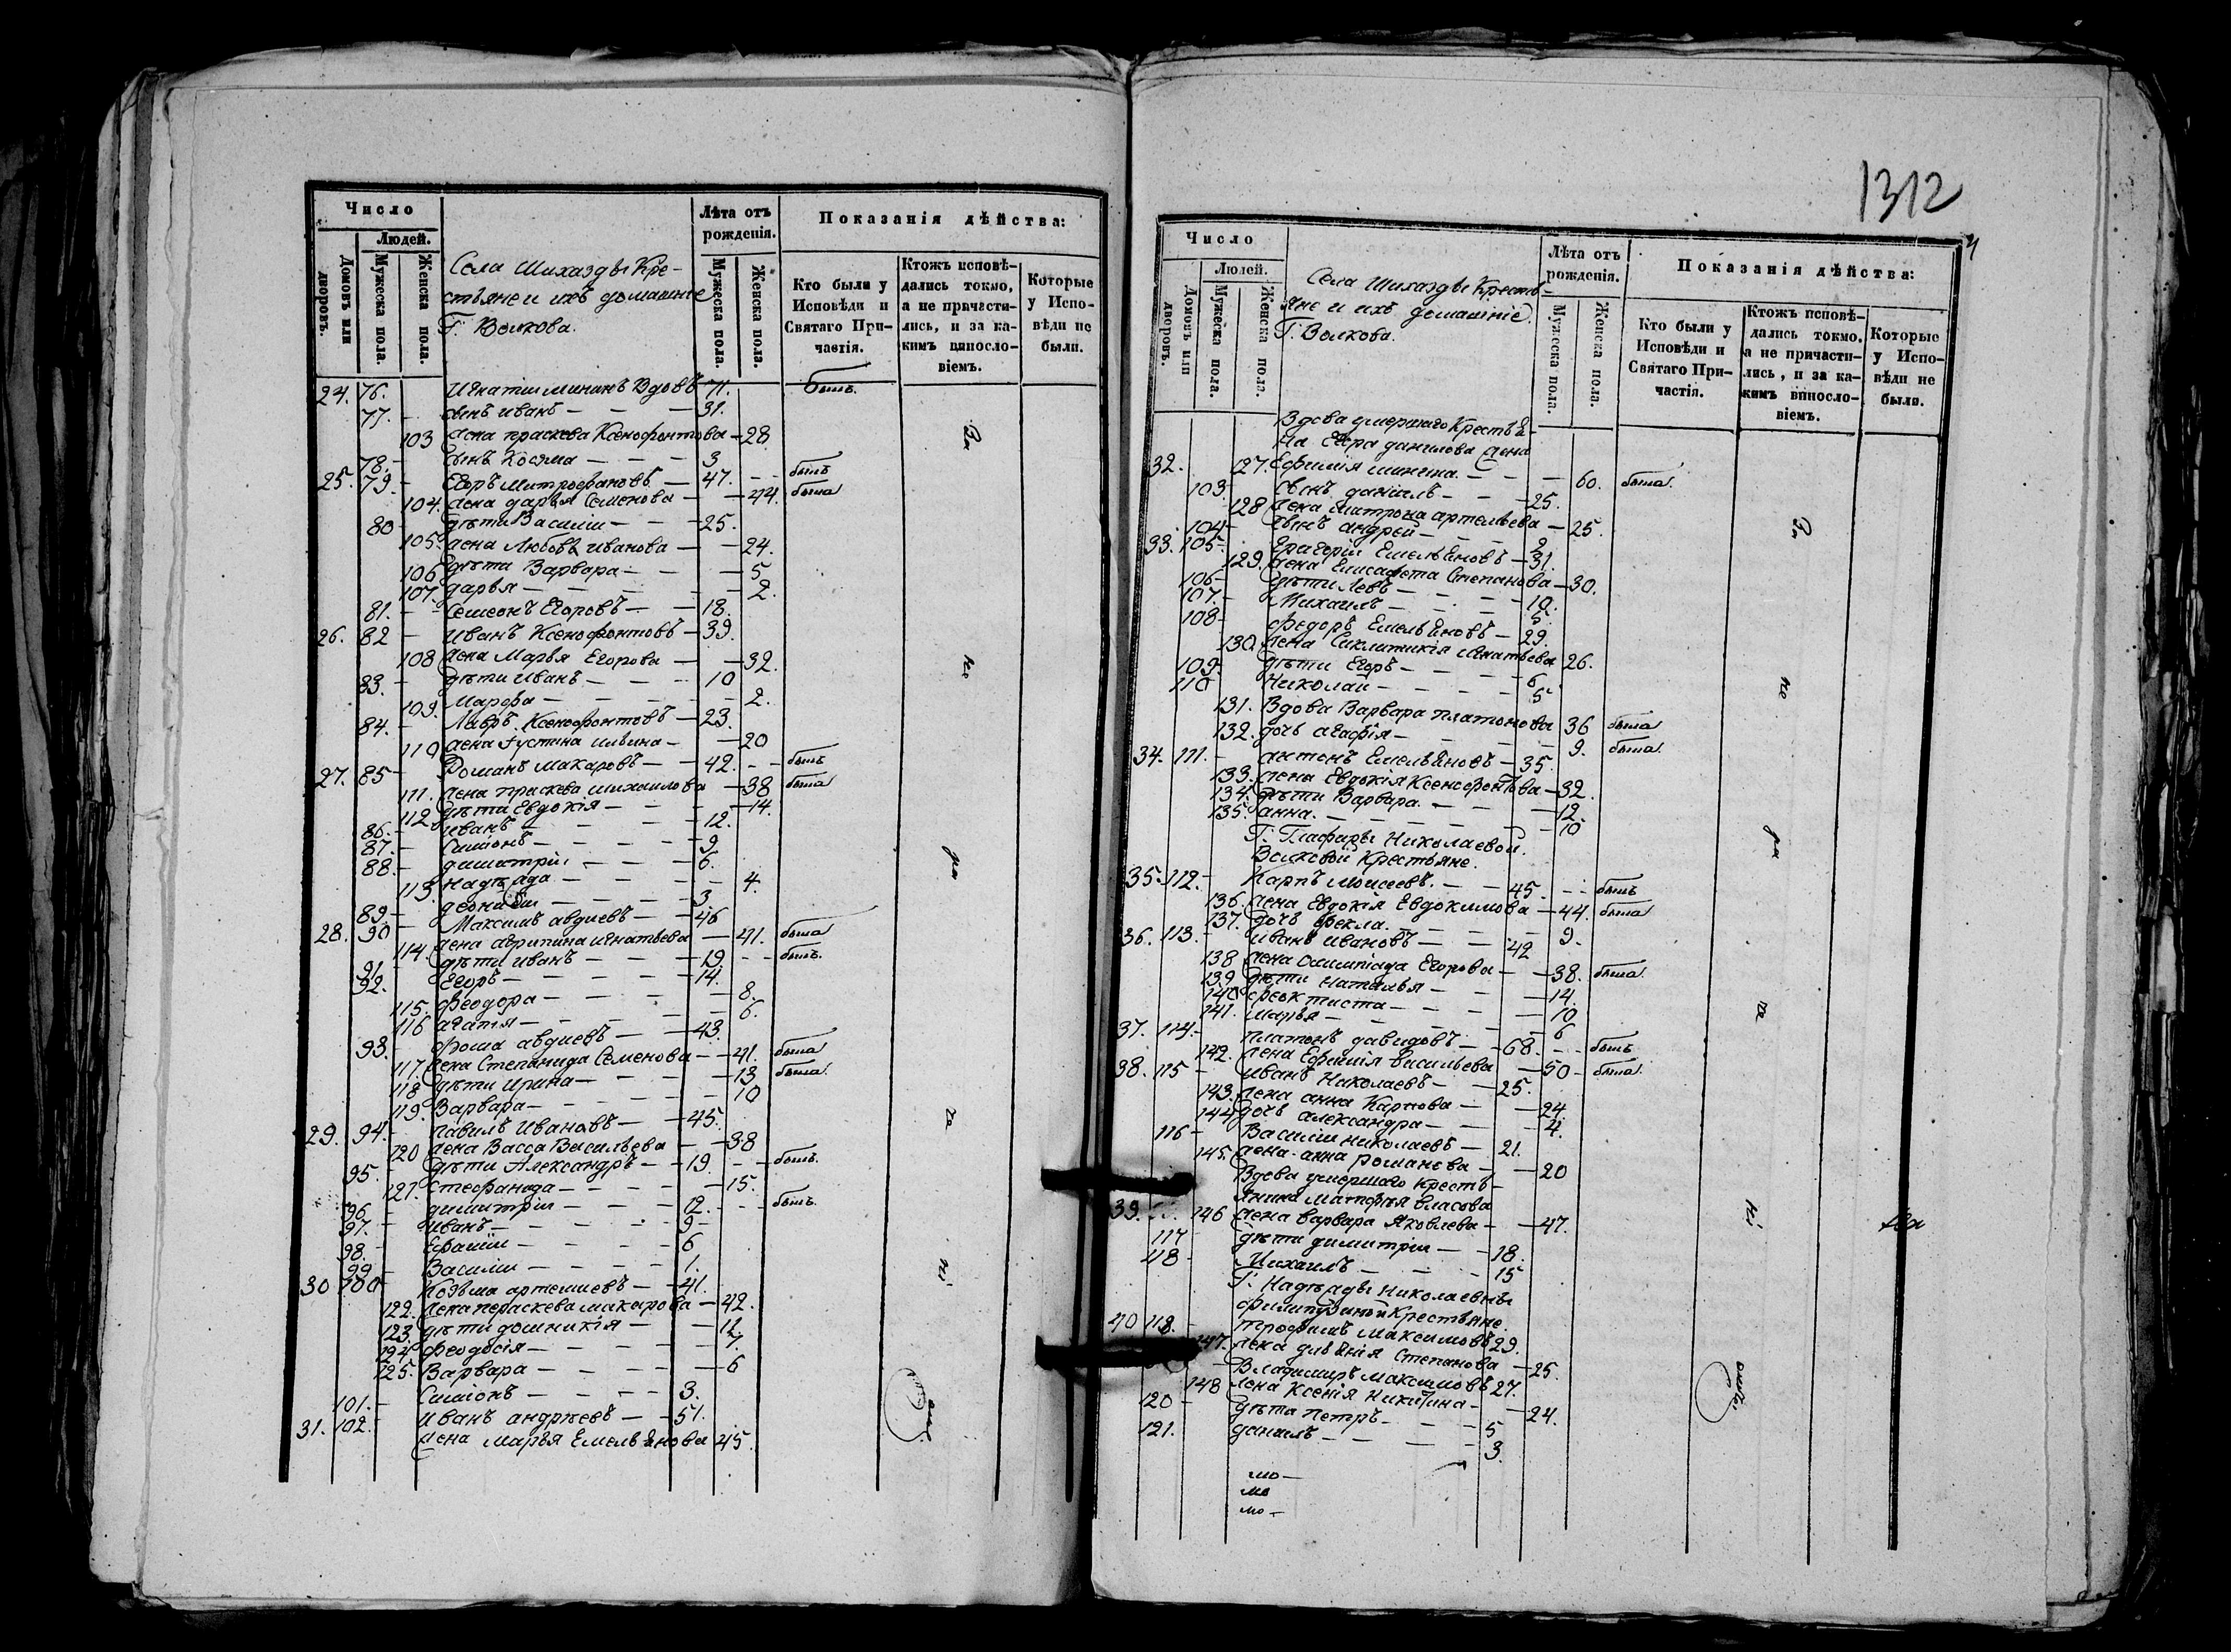 Число
Людей.
Домовъ или дворовъ.
Мужеска пола.
Женска пола.
Села Шихазды Кре-
стьяне и ихъ домашніе
Г. Волкова.
Лѣта отъ рожденія.
Мужеска пола.
Женска пола.
Показанія дѣйства:
Кто были у Исповѣди и Святаго Причастія.
Ктожъ исповѣдались токмо, а не причастились, и за какимъ винословіемъ.
Которые у Исповѣди не были.
24. 76. Игнатіи Мининъ Вдовъ 71. былъ.
77. сынъ иванъ — 31.
103 жена праскева Ксенофонтова — 28
78. сынъ Косма — 3
25. 79. Егоръ Митрофановъ — 47. былъ
104. жена дарья Семенова — 44. была
80 дѣти Василіи — 25.
105. жена Любовь иванова — 24.
106 дѣти Варвара — 5
107. дарья — 2.
81. Семеонъ Егоровъ — 18.
26. 82 иванъ Ксенофонтовъ — 39.
108 жена Марья Егорова — 32.
83. дѣти иванъ — 10
109. Марфа — 2.
84. Лавръ Ксенофонтовъ — 23.
110 жена Іустина ильина — 20
27. 85 Романъ Макаровъ — 42. былъ
111. жена праскева михаилова — 38 была
112 дѣти Евдокія — 14.
86. иванъ — 12.
87. Симіонъ — 9
88. димитріи — 6.
113. надѣжда — 4.
89. — 3
28. 90 Максимъ авдиевъ — 46
114. жена агрипина игнатьева — 41. была
91. дѣти иванъ — 19 былъ.
92. Егоръ — 14.
115. феодора — 8.
116 агатія — 6.
93. фома авдиевъ — 43.
117. жена Степанида Семенова — 41. была
118 дѣти ирина — 13 была
119. Варвара — 10
29. 94. павилъ ивановъ — 45.
120 жена Васса Васильева — 38
95. дѣти Александръ — 19. былъ.
121. стефанида — 15.
96 димитріи — 12. былъ.
97. иванъ — 9
98. Ефимii — 6
99 Василіи — 1.
30 100 Козьма артемиевъ — 41.
122. жена параскева макарова — 42.
123. дѣти домникія — 12.
124 феодосія — 7.
125. Варвара — 6
101. Симіонъ — 3.
31. 102. иванъ андрѣевъ — 51.
жена марья Емельянова 45.
За
не
ра
че
ні
емъ
1312
Число
Людей.
Домовъ или дворовъ.
Мужеска пола.
Женска пола.
Села Шихазды Кресть-
яне и ихъ домашніе.
Г. Волкова.
Лѣта отъ рожденія.
Мужеска пола.
Женска пола.
Показанія дѣйства:
Кто были у Исповѣди и Святаго Причастія.
Ктожъ исповѣдались токмо, а не причастились, и за какимъ винословіемъ.
Которые у Исповѣди не были.
Вдова умершаго Крестья-
на Егора данилова жена
32. 127. Ефимія минина — 60. была.
103. сынъ данилъ — 25.
128 жена матрона артемьева — 25.
104 сынъ андрей — 2
33. 105 Григоріи Емельяновъ — 31.
129. жена Елисавета Степанова — 30.
106 дѣти Левъ — 10.
107. Михаилъ — 5.
108 федоръ Емельяновъ — 29.
130. жена Сиклитикія игнатьева 26.
109. дѣти Егоръ — 6
110 Николаи — 5
131. Вдова Варвара платонова 36 была
132. дочь агафія — 9. была
34. 111. антонъ Емельяновъ — 35.
133. жена Евдокія Ксенофонтова — 32.
134. дѣти Варвара — 12.
135. анна — 10
Г. Глафиры Николаевой
Волковой Крестьяне.
35. 112. Карпъ моисеевъ — 45 былъ
136. жена Евдокія Евдокимова — 44. была
137. дочь фекла — 9.
36. 113. иванъ ивановъ — 42
138 жена олимпіада Егорова — 38. была
139 дѣти наталья — 14.
140 феоктиста — 10
141. марья — 6
37. 114. платонъ давидовъ — 68. былъ
142. жена Ефимія васильева — 50 была
38. 115 иванъ Николаевъ — 25.
143. жена анна Карпова — 24
144 дочь александра — 4.
116 Василіи николаевъ — 21.
145. жена анна романова — 20
Вдова умершаго кресть-
янина матфѣя власова
39. 146 жена варвара Яковлева — 47.
117 дѣти димитріи — 18.
118 Михаилъ — 15
Г. Надѣжды Николаевны
Крестьяне.
40 118. трофимъ максимовъ 29.
147. жена Степанова — 25.
Владимиръ максимовъ 27.
148 жена Ксенія Никитина — 24.
120 дѣти петръ — 5
121. данилъ — 3.
мо —
мо
мо —
За
не
ра
че
ні
емъ